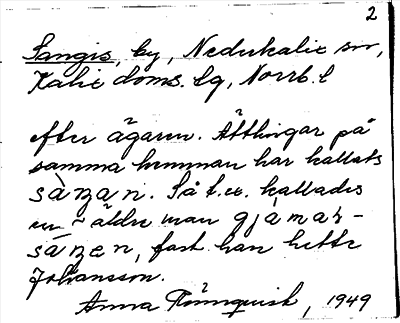 2
Sangis, by, Nederkalix sn,
Kalix doms. lg, Norrb. l
efter ägaren. Ättlingar på
samma hemman har kallats
sàzan. Så t.ex. kallades
en äldre man gjámaz-
sazen, fast han hette
Johansson.
Anna Rönnquist, 1949